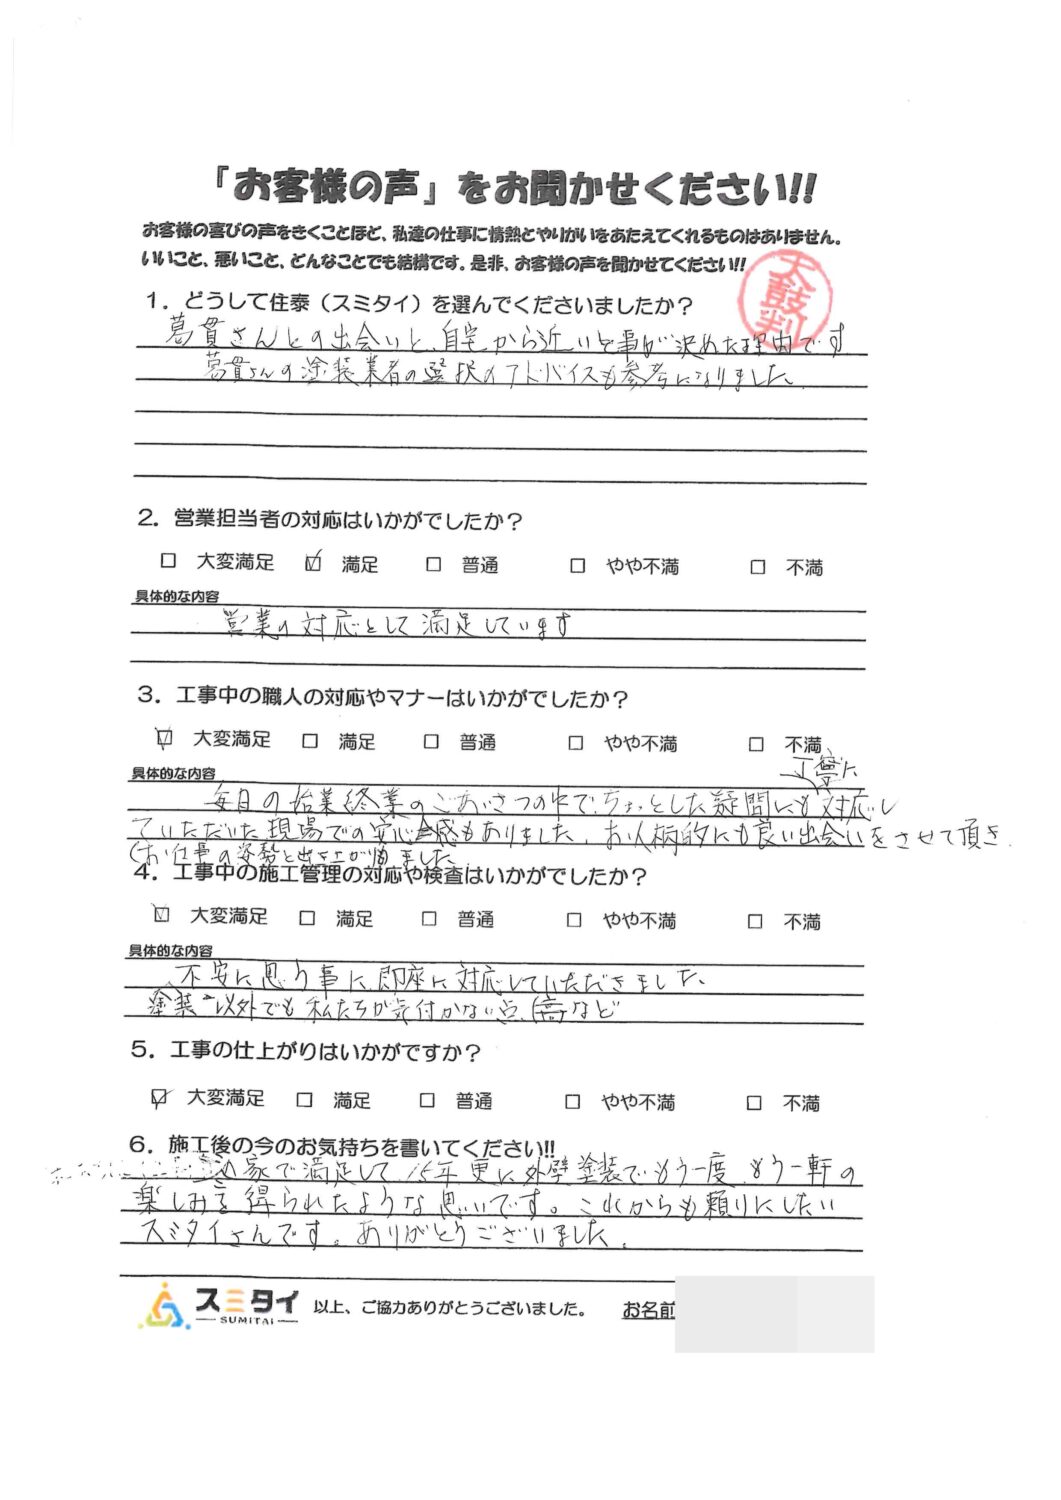 「お客様の声」をお聞かせください!!
お客様の喜びの声をきくことほど、私達の仕事に情熱とやりがいをあたえてくれるものはありません。
いいこと、悪いこと、どんなことでも結構です。是非、お客様の声を聞かせてください!!
太鼓判
1．どうして住泰（スミタイ）を選んでくださいましたか？
葛貫さんとの出会いと、自宅から近いと事が決めた理由です
葛貫さんの塗装業者の選択のアドバイスも参考になりました。
2．営業担当者の対応はいかがでしたか？
□ 大変満足 ☑ 満足 □ 普通 □ やや不満 □ 不満
具体的な内容
営業の対応として満足しています
3．工事中の職人の対応やマナーはいかがでしたか？
☑ 大変満足 □ 満足 □ 普通 □ やや不満 □ 不満
具体的な内容
丁寧に
毎日の始業終業のごあいさつの中で、ちょっとした疑問にも対応し
ていただいた現場での安心感もありました。お人柄的にも良い出会いをさせて頂き
お仕事の姿勢と出来上がり ました
4．工事中の施工管理の対応や検査はいかがでしたか？
☑ 大変満足 □ 満足 □ 普通 □ やや不満 □ 不満
具体的な内容
不安に思う事に即座に対応していただきました。
塗装以外でも私たちが気付かない点 など
5．工事の仕上がりはいかがですか？
☑ 大変満足 □ 満足 □ 普通 □ やや不満 □ 不満
6．施工後の今のお気持ちを書いてください!!
家で満足して、15年更に外壁塗装でもう一度、もう一軒の
楽しみを得られたような思いです。これからも頼りにしたい
スミタイさんです。ありがとうございました。
スミタイ
SUMITAI
以上、ご協力ありがとうございました。 お名前